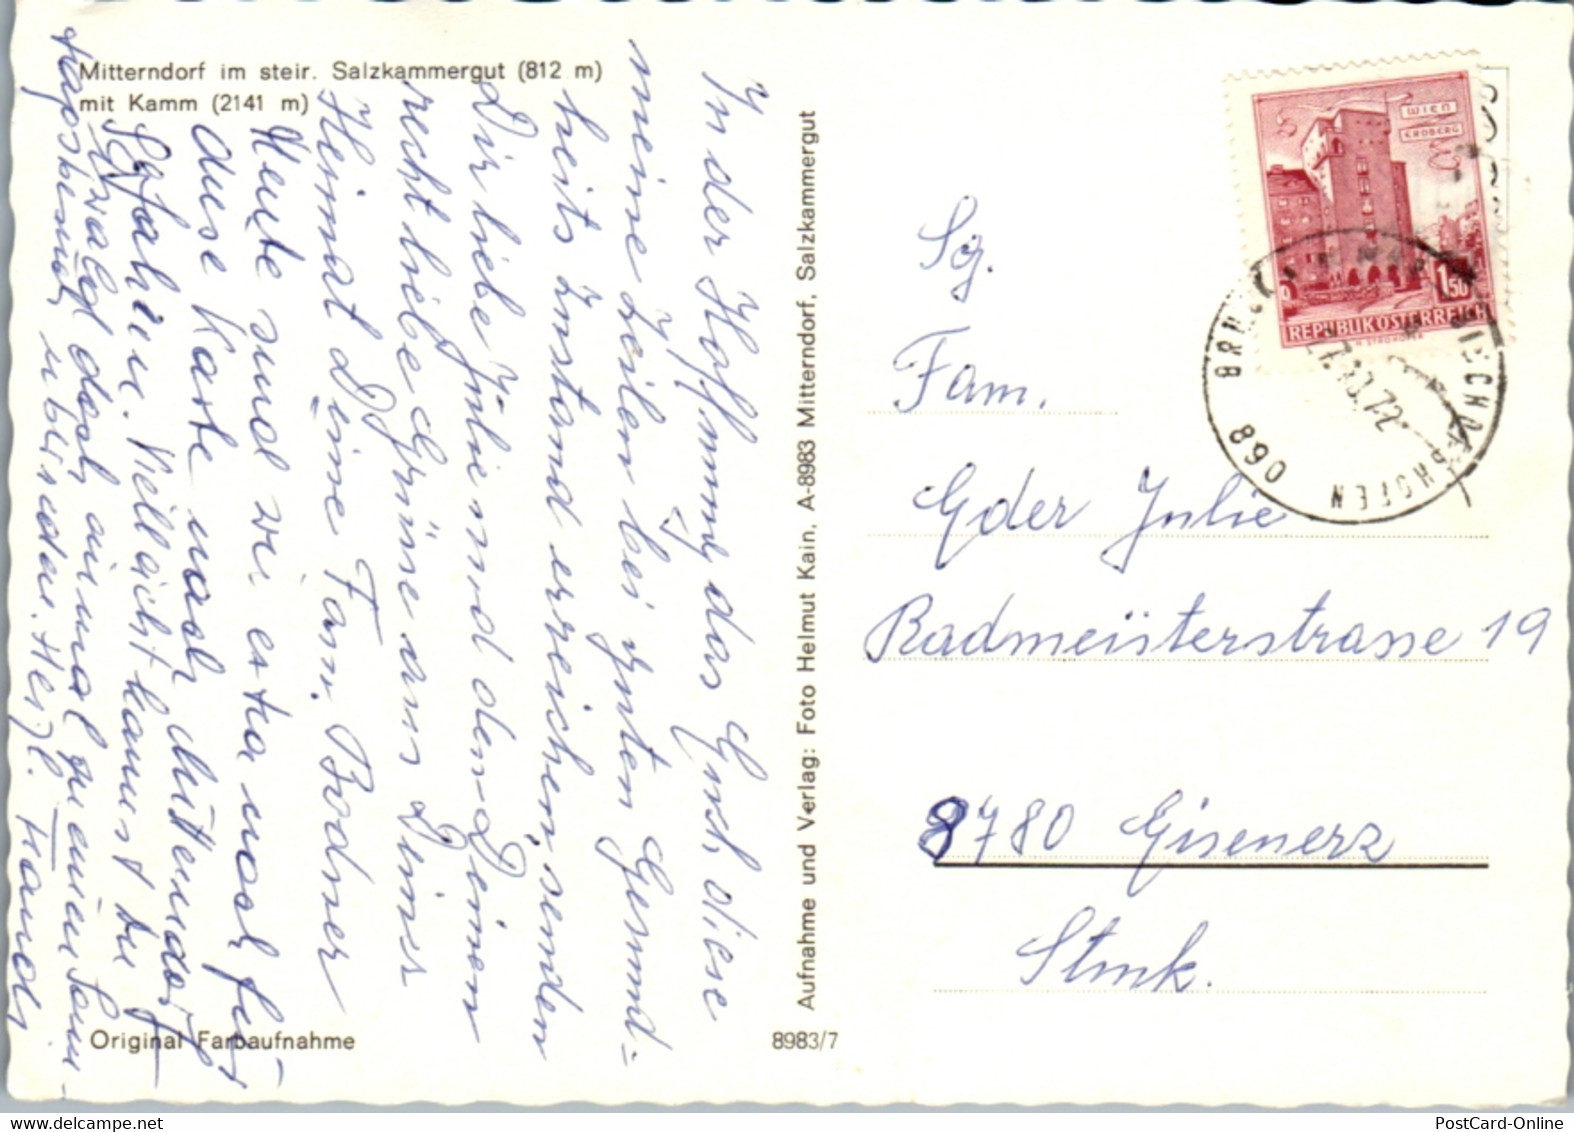 Mitterndorf im steir. Salzkammergut (812 m)
mit Kamm (2141 m)
In der Hoffnung das Euch diese
meine Zeilen bei guten Gesund-
heits Zustand erreichen, senden
Dir liebe Julie und den Deinen
recht liebe Grüsse aus Deiner
Heimat Deine Fam. Bodner
Heute sind wir extra noch für
diese Karte nach Mitterndorf
gefahren. Vielleicht kannst du
doch einmal zu einem Sam-
stag überreden. Herzl.
Original Farbaufnahme
8983/7
Aufnahme und Verlag: Foto Helmut Kain, A-8983 Mitterndorf, Salzkammergut
WIEN
ERDBERG
1,50
REPUBLIK ÖSTERREICH
068
Sg.
Fam.
Eder Julie
Radmeisterstrasse 19
8780 Eisenerz
Stmk.
PostCard-Online